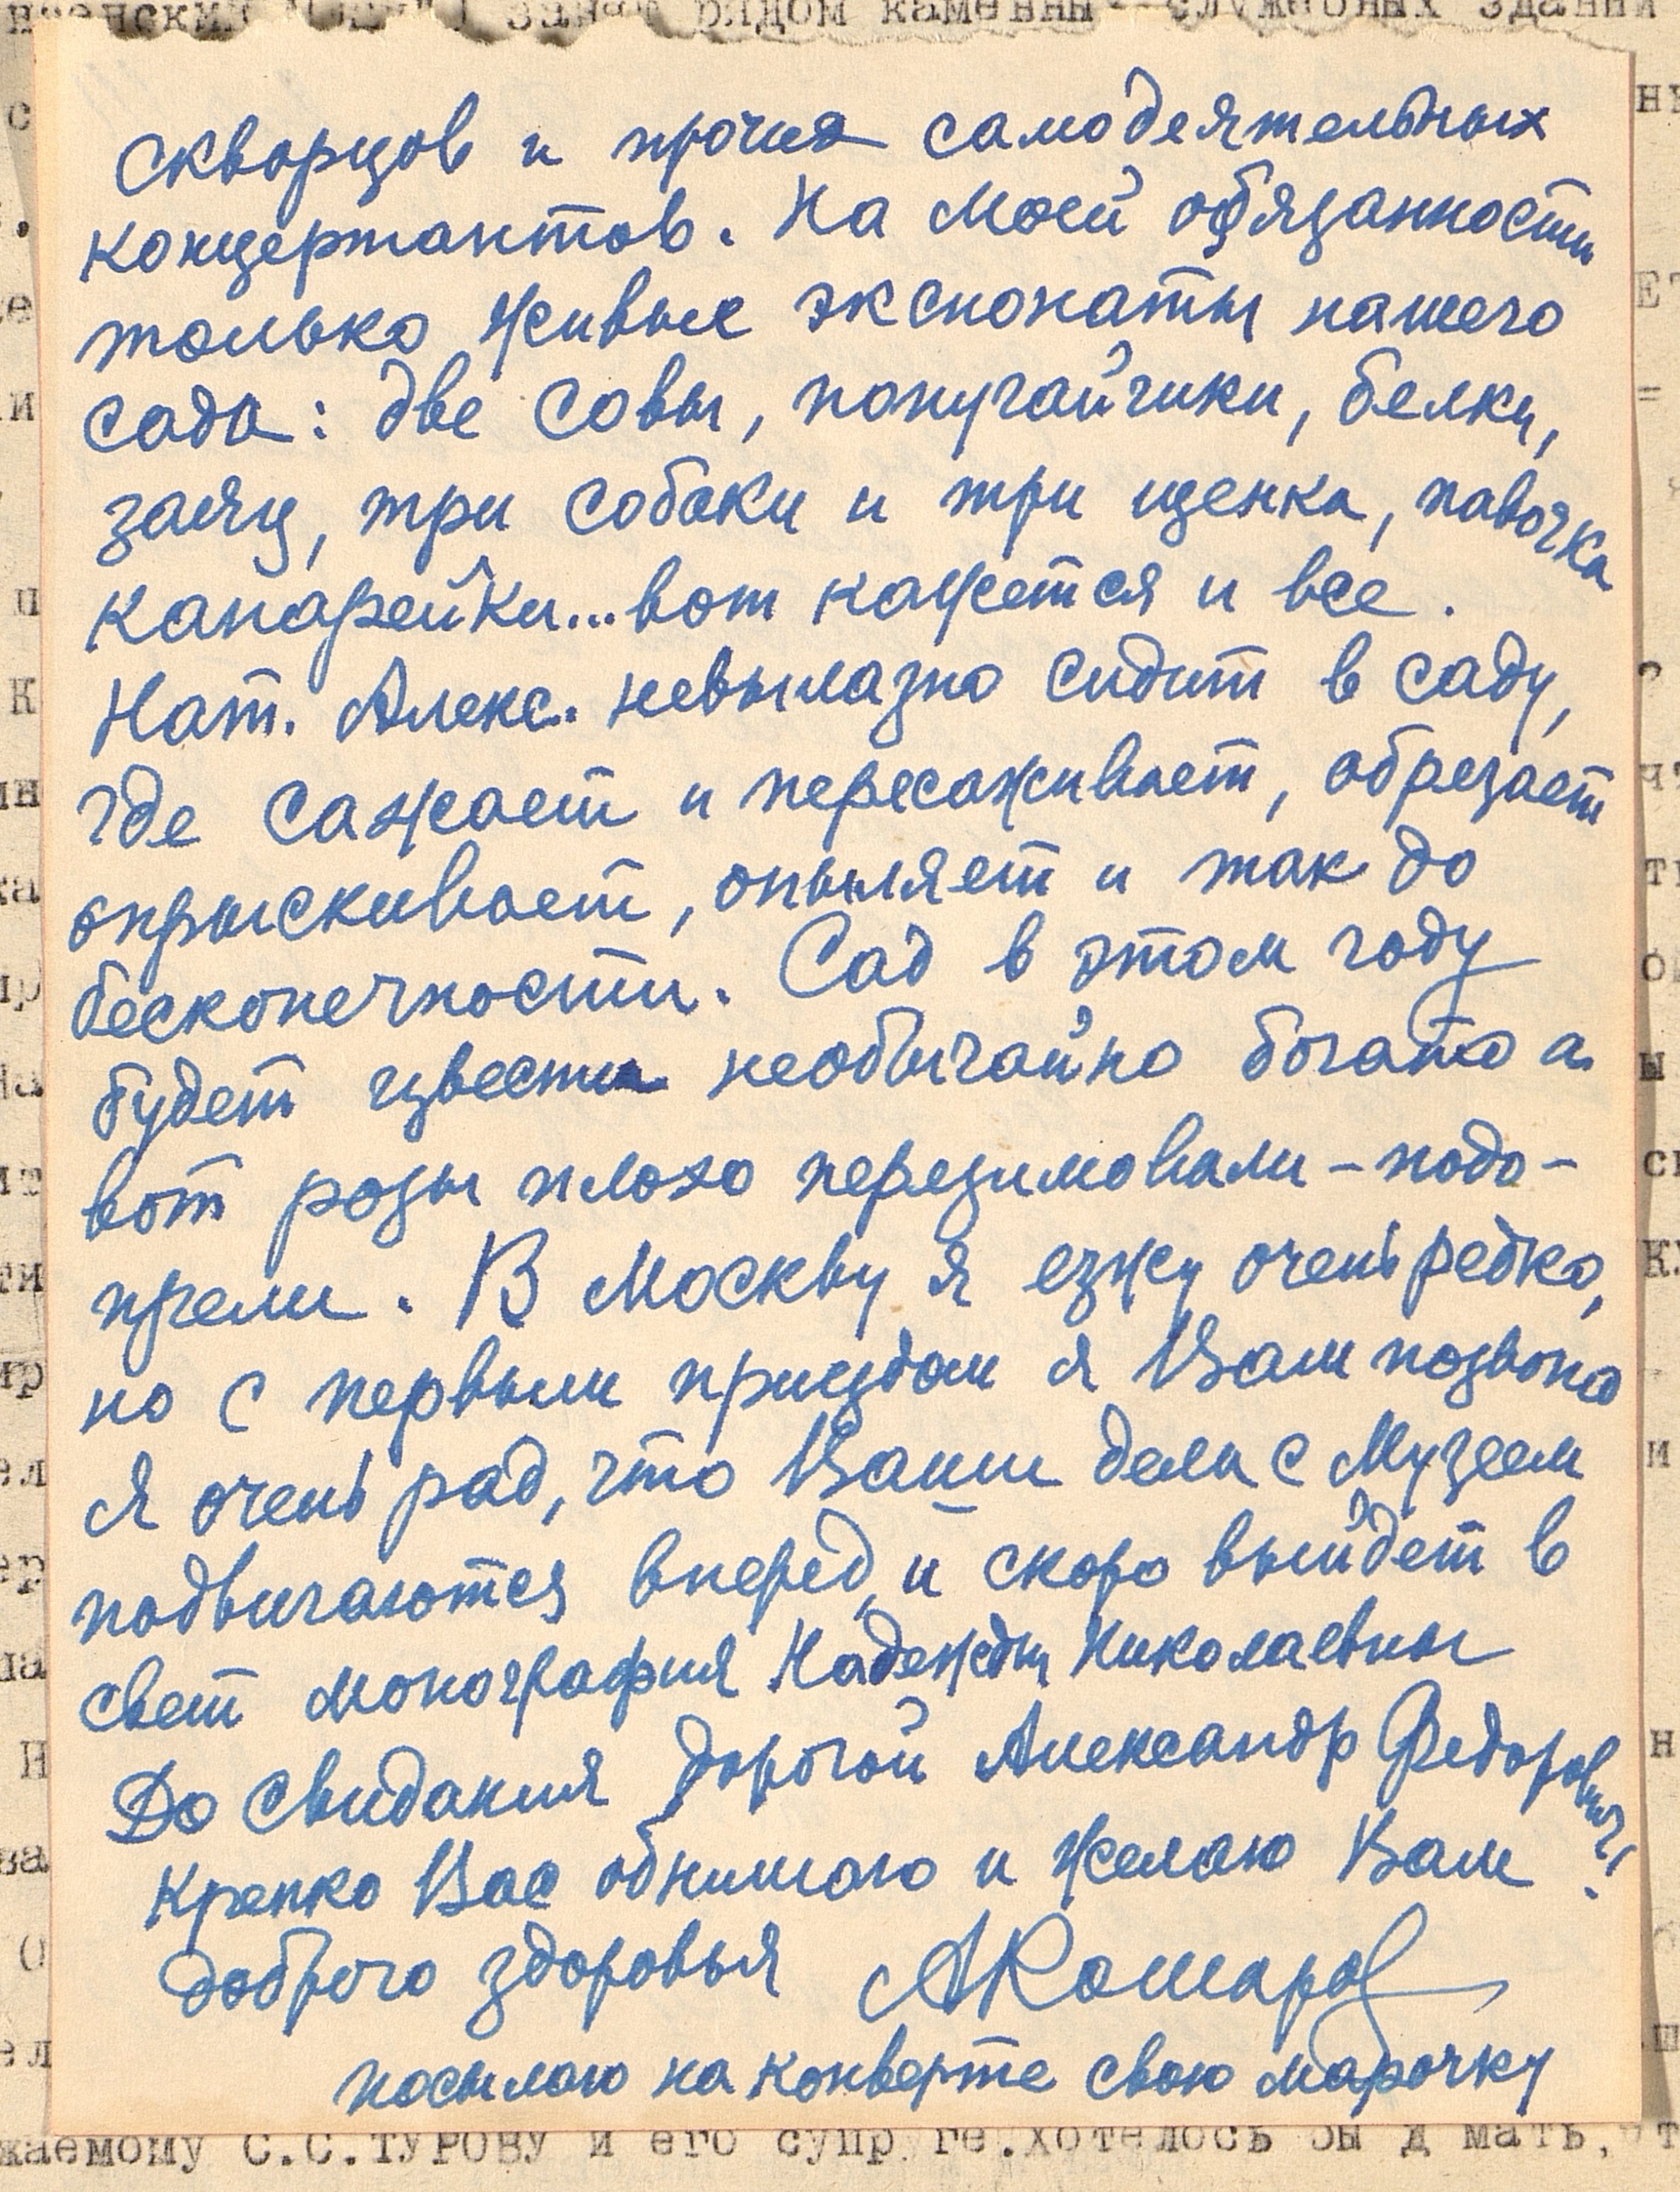 скворцов и прочих самодеятельных
концертантов. На моей обязанности
только живые экспонаты нашего
сада: две совы, попугайчики, белки,
заяц, три собаки и три щенка, павочка
канарейки... вот кажется и все.
Нат. Алекс. невылазно сидит в саду,
где сажает и пересаживает, обрезает
опрыскивает, опыляет и так до
бесконечности. Сад в этом году
будет цвести необычайно богато а
вот розы плохо перезимовали - подо-
прели. В Москву я езжу очень редко,
но с первым приездом я Вам позвоню
Я очень рад, что Ваши дела с Музеем
подвигаются вперед, и скоро выйдет в
свет монография Надежды Николаевны
До свидания дорогой Александр Федорович!
Крепко Вас обнимаю и желаю Вам
доброго здоровья АКомаров
посылаю на конверте свою марочку
жаемому С.С.ТУРОВУ и его супруге.хотелось бы